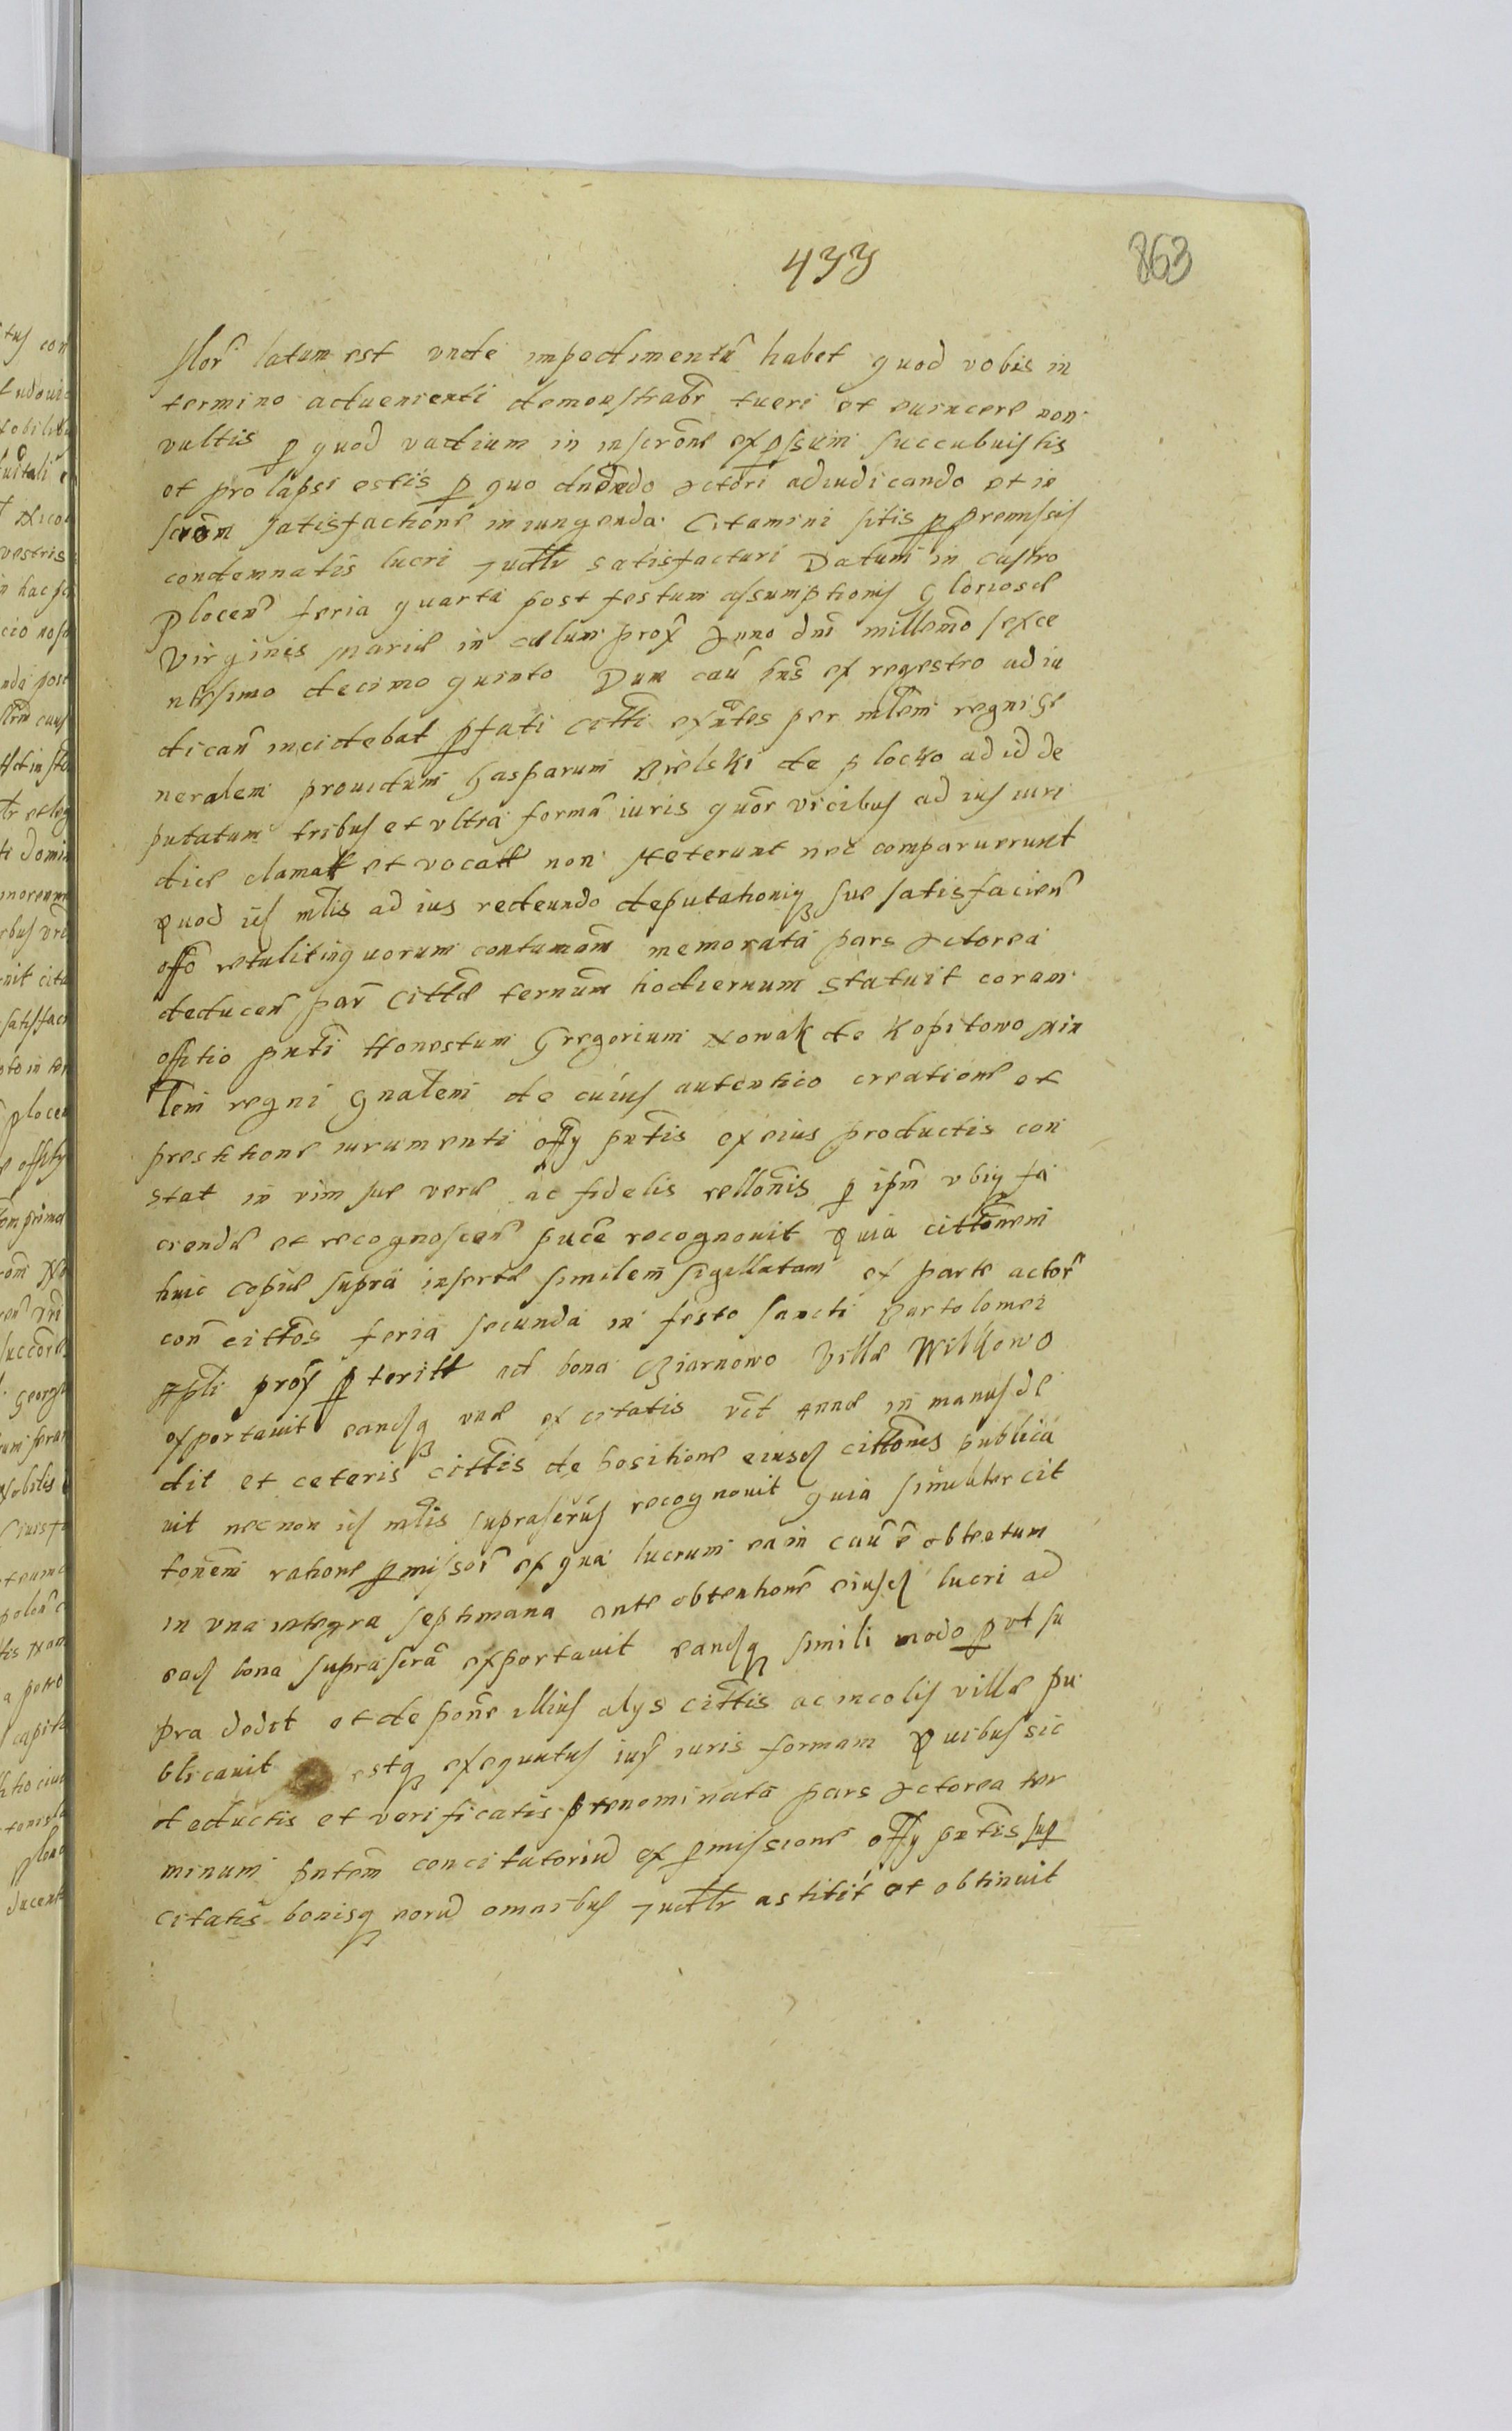 433
863
stor latum est vnde impedimentū habet quod vobis in
termino aduenienti demonstrabr tueri et euincere non
vultis p quod vadium in inscrone expssum succubuistis
et prolapsi estis p quo dnddo Actori adiudicando et in
satisfactione iniungenda Citamini sitis p premissis
condemnatis lucri Judtr satisfacturi Datum in castro
Plocen feria quarta post festum assumptionis Gloriosae
Virginis Mariae in caelum prox Anno dni millemo sexce
ntesimo decimo quinto Dum cau hns ex regestro adiu
dican incidebat pfati citti exntes per mlem regni ge
neralem prouidum Gasparum Bielski de Plocko ad id de
putatum tribus et vltra formā iuris quor vicibus ad ius iuri
dice clamatt et vocatt non steterunt nec comparuerunt
Quod is mlis ad ius redeundo deputationiq sue satisfacien
offo retulit in quorum contumam memorata pars Actorea
deducen par Cittae ternum hodiernum statuit coram
offitio pnti Honestum Gregorium Nowak de Kopitowo min
lem regni gnalem de cuius autentico creatione et
prestitione iuramenti offy pntis ex eius productis con
stat in vim sue verae ac fidelis rellonis p ipm vbiq fa
ciendae et recognoscen puce recognouit Quia cittonem
huic copiae supra insertae similem sigillatam ex parte actor
con cittos feria secunda in festo sancti Bartolomei
Apli prox pteritt ad bona Biarnowo villae Wilkowo
exportauit eandq vnae ex citatis vct Annae in manus de
dit et ceteris cittis de positione eiusd cittonis publica
uit necnon is mlis suprascrus recognouit quia similiter cit
tonem ratione pmissor ex qua lucrum ea in cau e obtentum
in vna integra septimana ante obtentione eiusd lucri ad
ead bona suprascra exportauit eandq simili modo put su
pra dedit et de pone illius alys cittis ac incolis villae pu
blicauit estq exequutus ius iuris formam Quibus sic
deductis et verificatis prenominata pars Actorea ter
minum pntem concitatoriu ex pmissione offy pntis sup
citatis bonisq eoru omnibus Judtr astitit et obtinuit